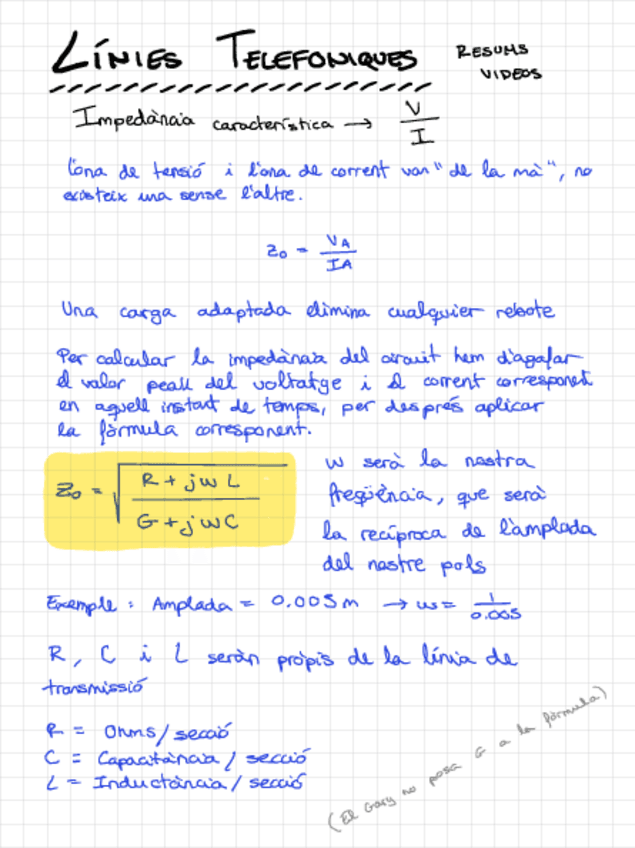 LÍNIES TELEFONIQUES RESUMS VIDEOS
Impedància característica → V/I
L'ona de tensió i l'ona de corrent van "de la mà", no
existeix una sense l'altre.
Z₀ = V_A/I_A
Una carga adaptada elimina cualquier rebote
Per calcular la impedància del circuit hem d'agafar
el valor peak del voltatge i el corrent corresponent
en aquell instant de temps, per després aplicar
la fòrmula corresponent.
Z₀ = √((R + jwL)/(G + jwC))
w serà la nostra
freqüència, que serà
la recíproca de l'amplada
del nostre pols
Exemple : Amplada = 0.005 m → w = 1/0.005
R, C i L seràn pròpis de la línia de
transmissió
R = Ohms / secció
C = Capacitància / secció
L = Inductància / secció
(El Gary no posa G a la fòrmula)